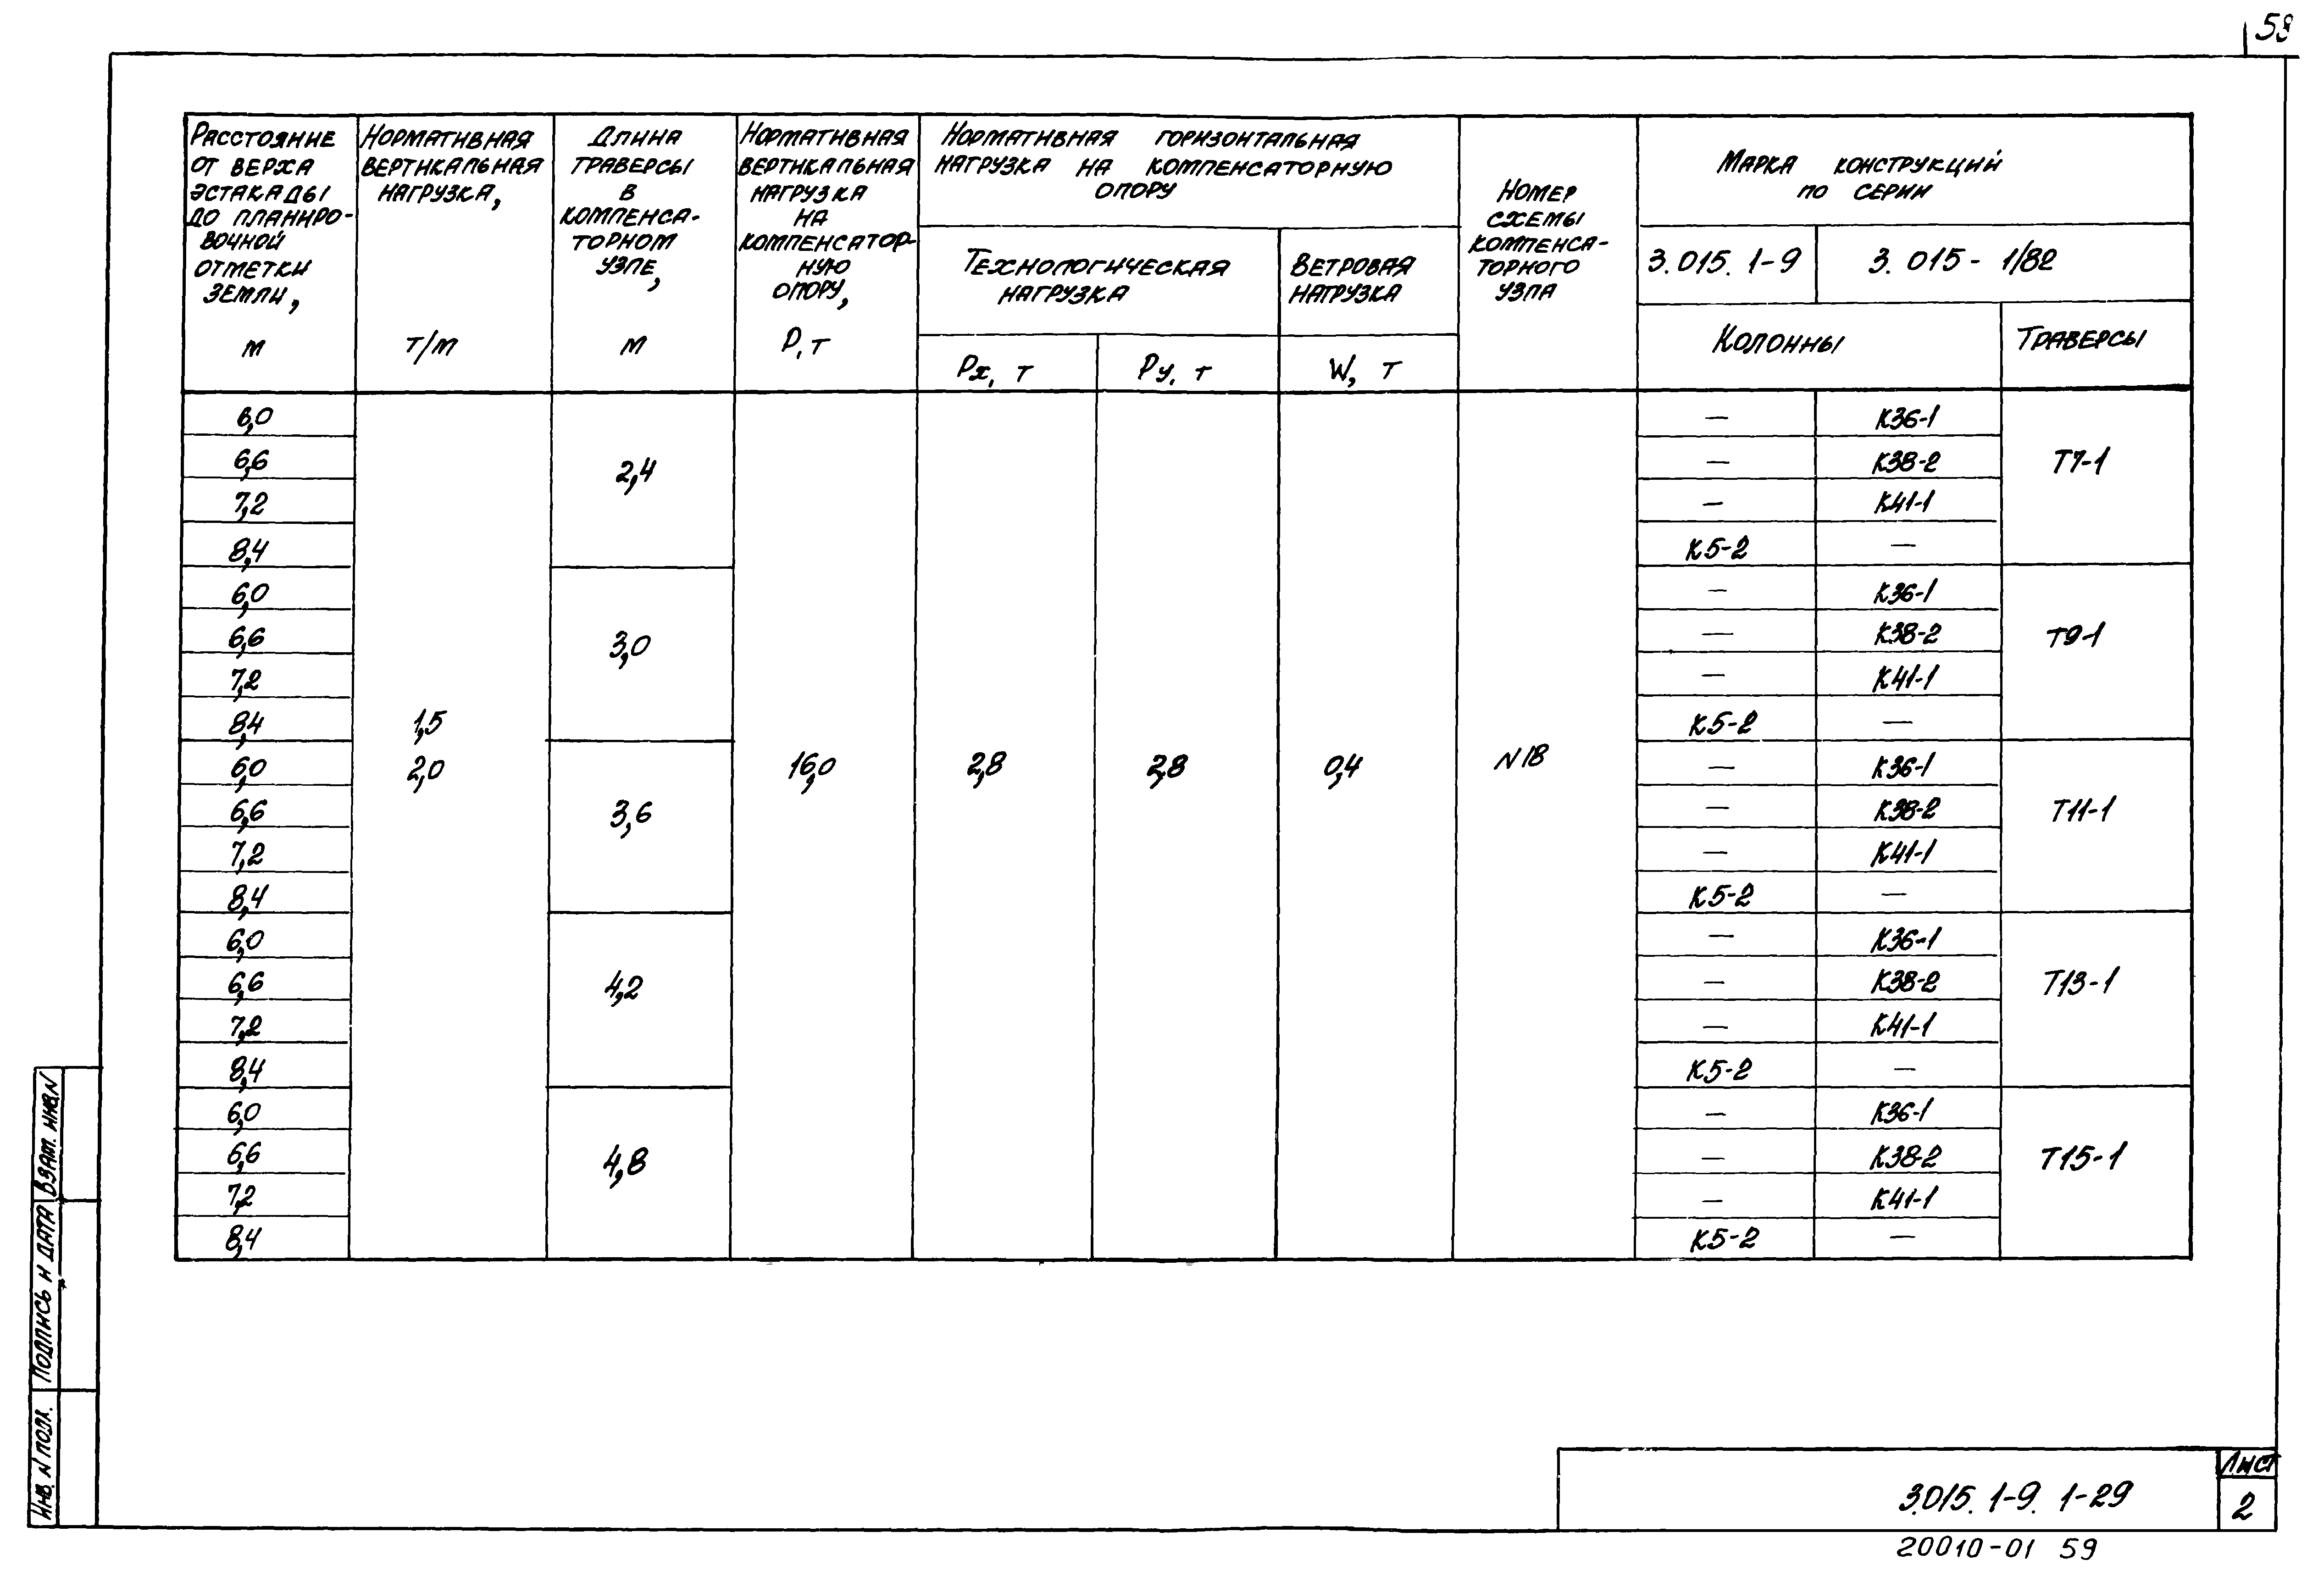 58
Расстояние
от верха
эстакады
до планиро-
вочной
отметки
земли,
м
Нормативная
вертикальная
нагрузка,
т/м
Длина
траверсы
в
компенса-
торном
узле,
м
Нормативная
вертикальная
нагрузка
на
компенсатор-
ную
опору,
P, т
Нормативная горизонтальная
нагрузка на компенсаторную
опору
Технологическая
нагрузка
Ветровая
нагрузка
Px, т
Py, т
W, т
Номер
схемы
компенса-
торного
узла
Марка конструкций
по серии
3.015.1-9
3.015-1/82
Колонны
Траверсы
6,0
—
К36-1
6,6
2,4
—
К38-2
Т7-1
7,2
—
К41-1
8,4
К5-2
—
6,0
—
К36-1
6,6
3,0
—
К38-2
Т9-1
7,2
—
К41-1
8,4
1,5
К5-2
—
6,0
2,0
16,0
2,8
2,8
0,4
N18
—
К36-1
6,6
3,6
—
К38-2
Т11-1
7,2
—
К41-1
8,4
К5-2
—
6,0
—
К36-1
6,6
4,2
—
К38-2
Т13-1
7,2
—
К41-1
8,4
К5-2
—
6,0
—
К36-1
6,6
4,8
—
К38-2
Т15-1
7,2
—
К41-1
8,4
К5-2
—
Инв. N подл.
Подпись и дата
Взам. инв. N
3.015.1-9.1-29
Лист
2
20010-01 59